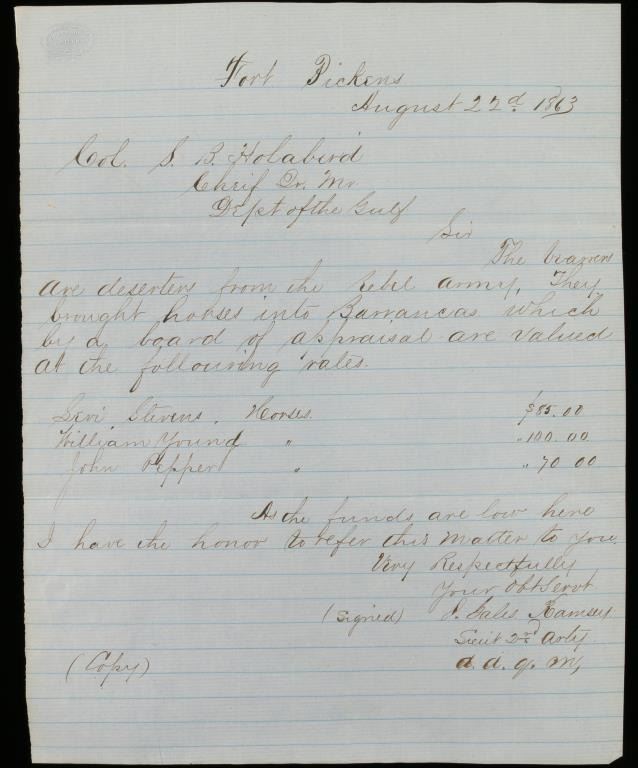 Fort Pickens
August 22d. 1863
Col. S. B. Holabird
Chief Qr. Mr
Dept of the Gulf
Sir
The bearers
are deserters from the rebel army, They
brought horses into Barrancas which
by a board of appraisal are valued
at the following rates.
Levi Stevens. Horses. $85.00
William Young " " 100.00
John Pepper " " 70 00
As the funds are low here
I have the honor to refer this matter to you
Very Respectfully
Your Obt Servt
(Signed) J. Gales Ramsey
Lieut 2nd Arty
a. a. q. m,
(Copy)